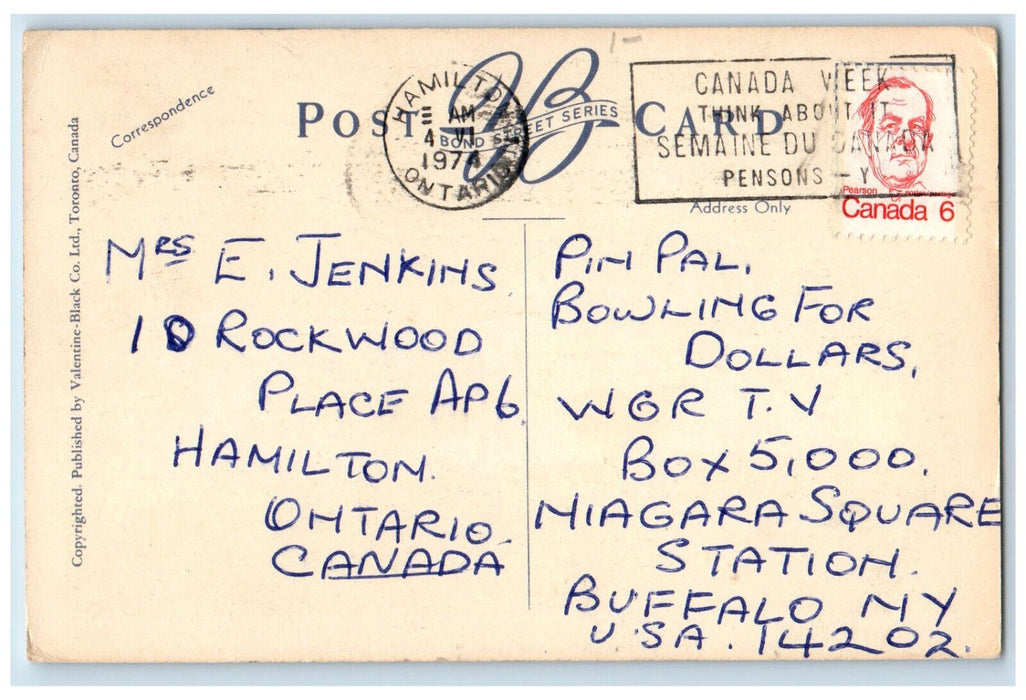 Copyrighted. Published by Valentine-Black Co. Ltd., Toronto, Canada
Correspondence
POST CARD
BOND STREET SERIES
HAMILTON
AM
4 VI
1974
ONTARIO
CANADA WEEK
THINK ABOUT IT
SEMAINE DU CANADA
PENSONS-Y
Pearson
Canada 6
Address Only
MRS E. JENKINS
10 ROCKWOOD
PLACE AP6
HAMILTON.
ONTARIO.
CANADA
PIN PAL.
BOWLING FOR
DOLLARS,
WGR T.V
BOX 5,000.
NIAGARA SQUARE
STATION.
BUFFALO NY
U.S.A. 14202.